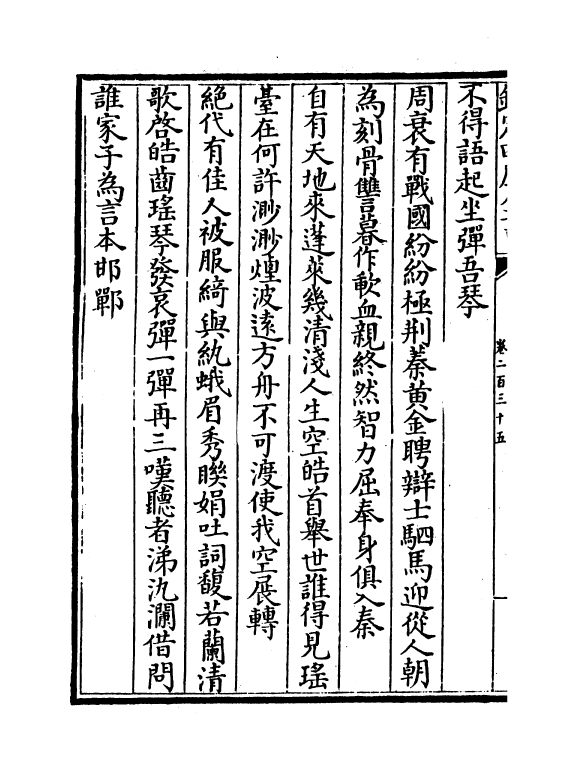 卷二百三十五
不得語起坐彈吾琴
周衰有戰國紛紛極荆蓁黄金聘辯士駟馬迎從人朝
為刻骨讐暮作歃血親終然智力屈奉身俱入秦
自有天地來蓬萊幾清淺人生空皓首舉世誰得見瑤
臺在何許渺渺煙波逺方舟不可渡使我空展轉
絶代有佳人被服綺與紈蛾眉秀聮娟吐詞馥若蘭清
歌啓皓齒瑤琴發哀彈一彈再三嘆聽者涕汍瀾借問
誰家子為言本邯鄲